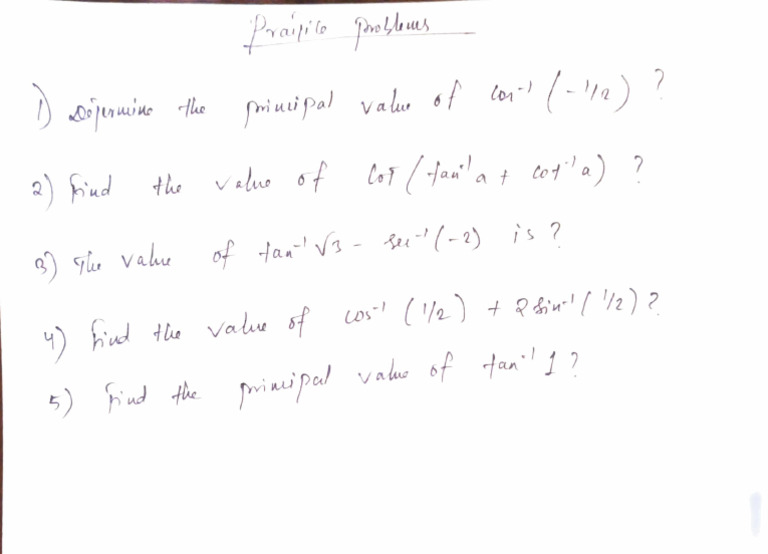 Practice problems
1) Determine the principal value of cos⁻¹ (-1/2) ?
2) find the value of cot (tan⁻¹a + cot⁻¹a) ?
3) The value of tan⁻¹√3 - sec⁻¹(-2) is ?
4) find the value of cos⁻¹ (1/2) + 2 sin⁻¹ (1/2) ?
5) find the principal value of tan⁻¹ 1 ?